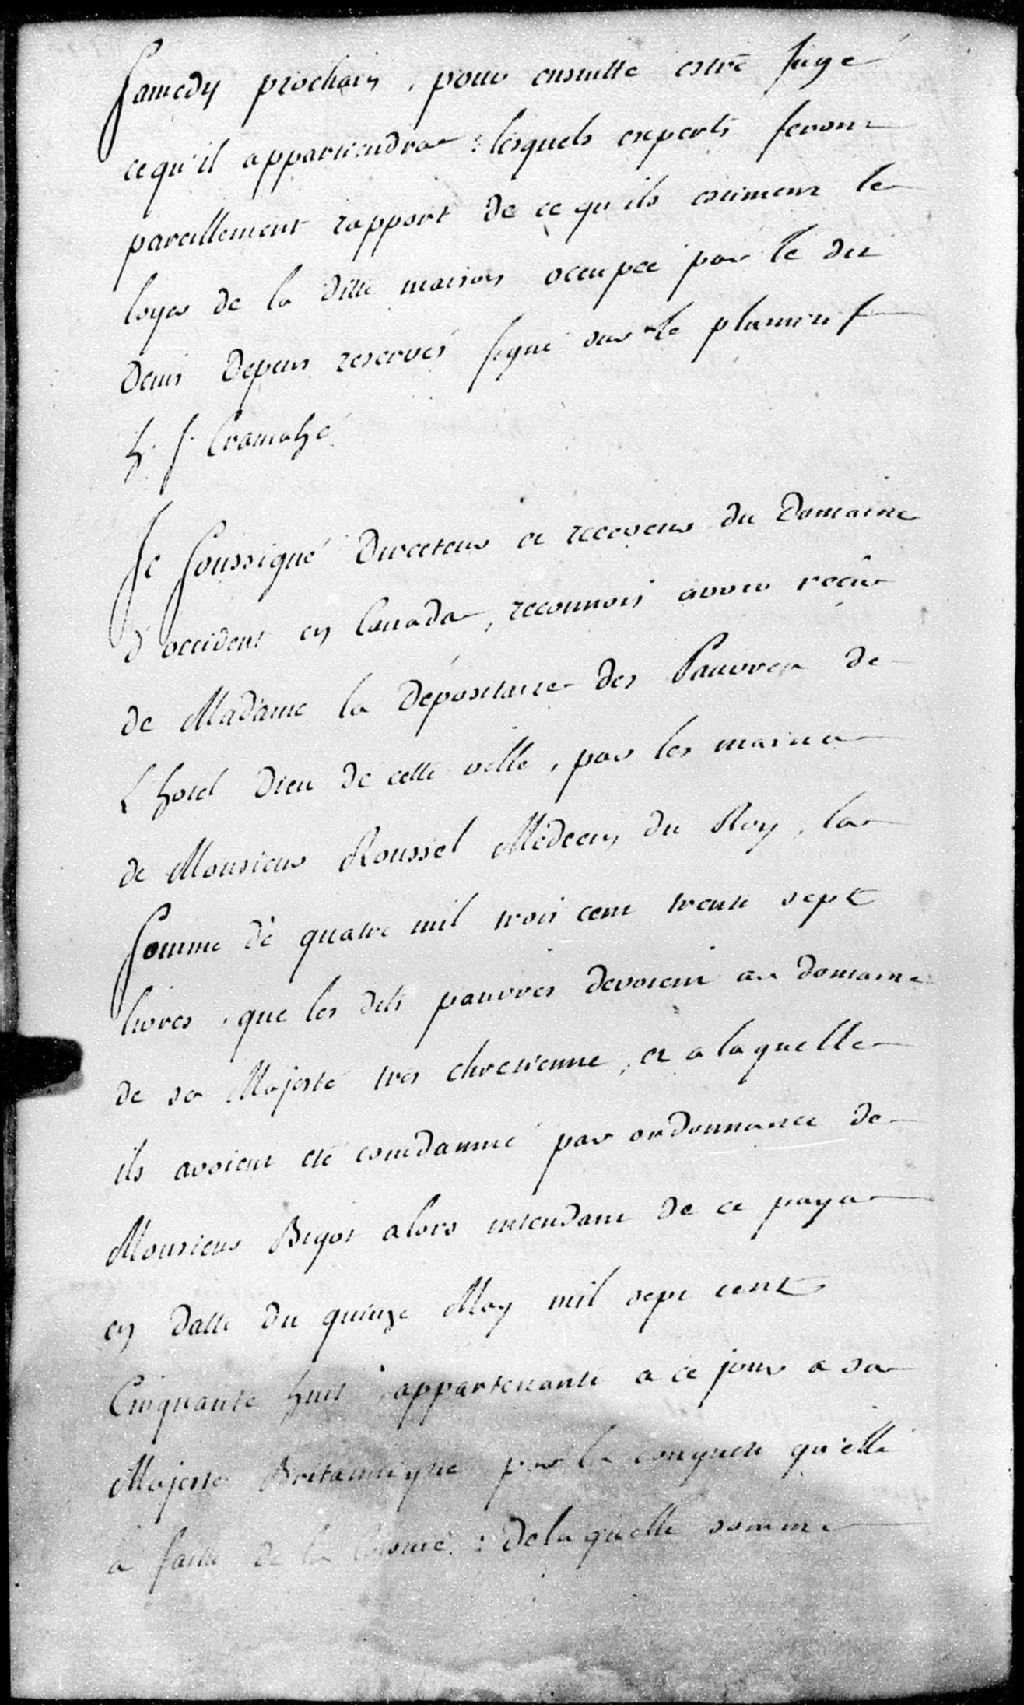 Samedy prochain, pour ensuitte estre jugé
ce qu'il appartiendra : lesquels experts feront
pareillement rapport de ce qu'ils estiment le
loyer de la ditte maison occupée par le dit
Denis Depens reservés signé sur le plumitif
h. J. Cramahé
Je soussigné Directeur et receveur du Domaine
d'occident en Canada, reconnois avoir reçu
de Madame la Dépositaire des Pauvres de
L'hotel Dieu de cette ville, par les mains
de Monsieur Roussel Médecin du Roy, la
Somme de quatre mil trois cent trente sept
livres, que les dits pauvres devoient au domaine
de sa Majesté tres chretienne, et a laquelle
ils avoient été condamné par ordonnance de
Monsieur Bigot alors intendant de ce pays
en datte du quinze May mil sept cent
Cinquante huit, appartenante a ce jour a sa
Majesté Britannique par la conquete qu'elle
à faite de la Colonie : de laquelle somme